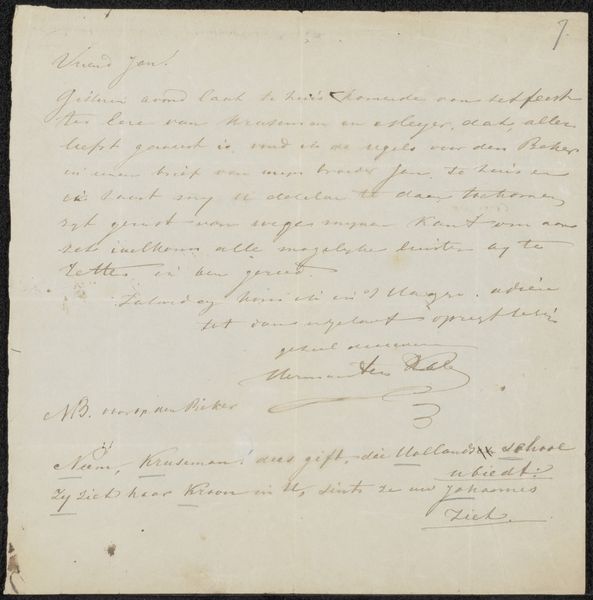 7.
Vriend Jan!
Gisteren avond laat te huis komende van het feest
ter Eere van Kruseman en , dat, aller
geweest is, vond ik de regels voor den Beker
in een brief van mijn broeder Jan, te huis en
ik haast mij U dezelve te doen toekomen,
zijt gerust van wege mijner kant om aan
het alle mogelijke luister bij te
Zetten ik ben gereed.
Zaturdag kom ik in 'sHage. adieu
tot
geheel
Herman ten Kate
NB. voor op den Beker
Neem, Kruseman! dees gift, die Hollands school
U biedt:
Zij ziet haar Kroon in U, sints ze uw Johannes
Ziet.